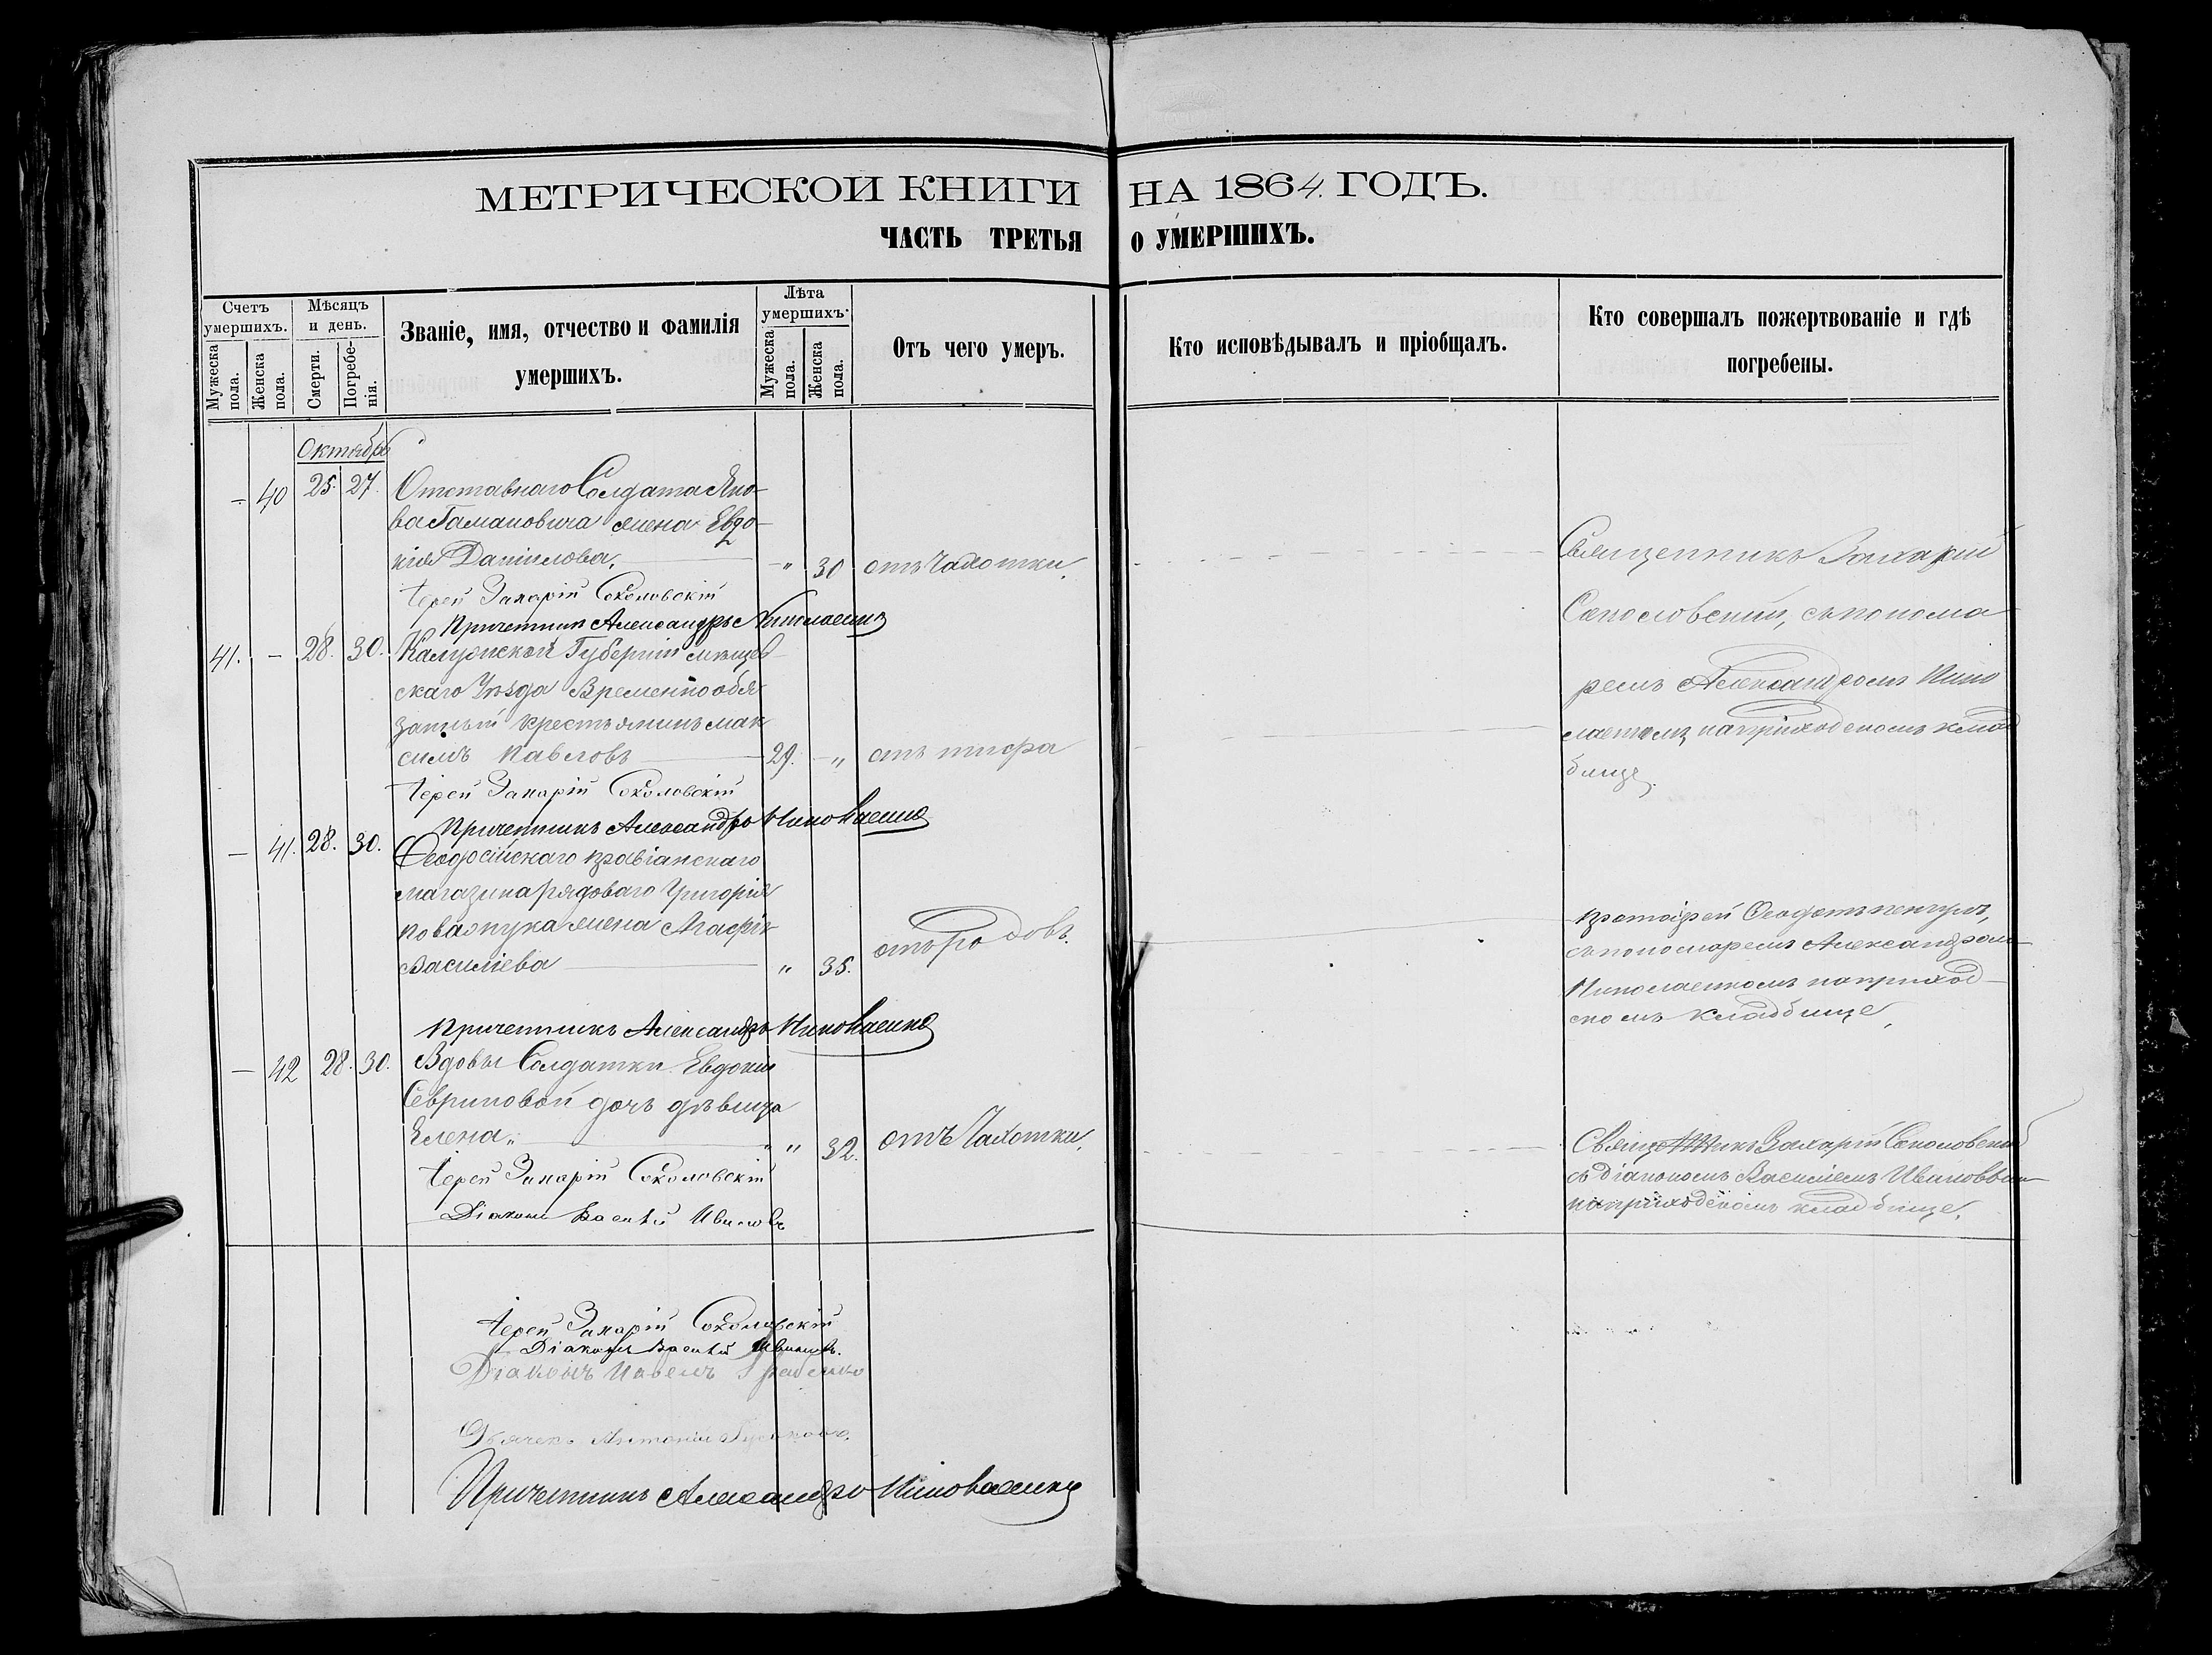 МЕТРИЧЕСКОЙ КНИГИ НА 1864. ГОДЪ.
ЧАСТЬ ТРЕТЬЯ О УМЕРШИХЪ.
Счетъ умершихъ.
Мужеска пола.
Женска пола.
Мѣсяцъ и день.
Смерти.
Погребенія.
Званіе, имя, отчество и фамилія
умершихъ.
Лѣта умершихъ.
Мужеска пола.
Женска пола.
Отъ чего умеръ.
Кто исповѣдывалъ и пріобщалъ.
Кто совершалъ пожертвованіе и гдѣ
погребены.
Октябрь
— 40 25. 27. Отставнаго Солдата Яко-
ва Гамановича жена Евдо-
кія Данилова, " 30 отъ Чахотки.
Іерей Захарій Соколовскій
Причетникъ Александръ Николаенко
Священникъ Захарій
Соколовскій, съ понома
ремъ Александромъ Нико
лаенкомъ на приходскомъ клад
бище.
41. — 28. 30. Калужской Губерніи мещев-
скаго Уѣзда Временно обя
занный крестьянинъ мак
симъ Павловъ 29. " отъ тифа
Іерей Захарій Соколовскій
Причетникъ Александръ Николаенко
— 41. 28. 30. Феодосійскаго провіанскаго
магазина рядоваго Григорія
жена Агафія
Василіева " 35. отъ родовъ.
Причетникъ Александръ Николаенко
протоіерей
съ пономаремъ Александромъ
Николаенкомъ на приход-
скомъ кладбище,
— 42 28. 30. Вдовы Солдатки Евдокіи
Севриновой дочь дѣвица
Елена " 32. отъ Чахотки,
Іерей Захарій Соколовскій
Діаконъ Василій Ивановъ
Священникъ Захарій Соколовскій
съ діакономъ Василіемъ Ивановымъ
на приходскомъ кладбище,
Іерей Захарій Соколовскій
Діаконъ Василій Ивановъ.
Діаконъ Павелъ
Дьячекъ Антоній
Причетникъ Александръ Николаенко